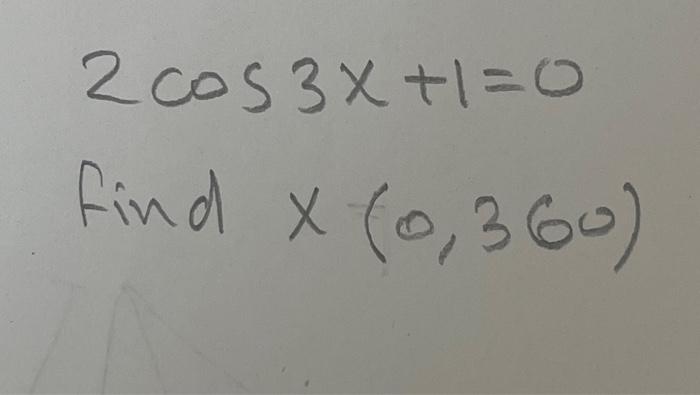 2 cos 3x + 1 = 0
find x (0, 360)